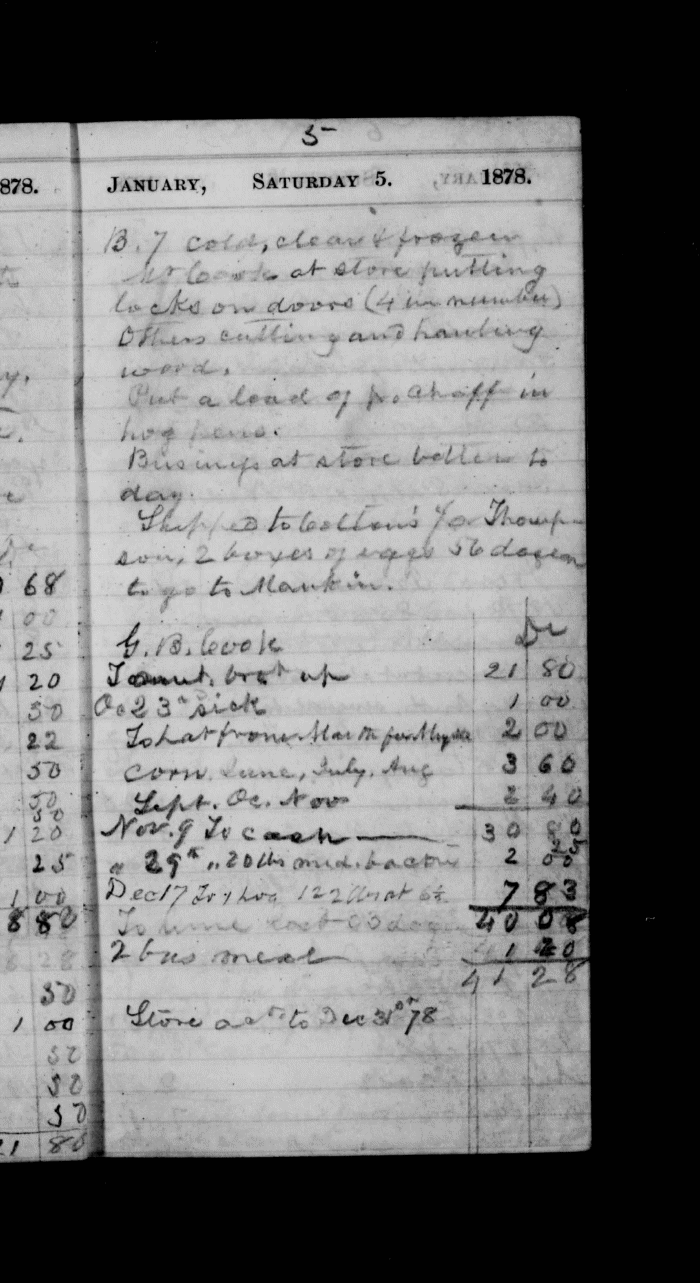 5
878.
JANUARY, SATURDAY 5. 1878.
B. 7 cold, clear & frozen
Mr Cook at store putting
locks on doors (4 in number)
Others cutting and hauling
wood.
Put a load of p. chaff in
hog pens.
Business at store better to
day.
Shipped to Colton's for Thomp-
son, 2 boxes of eggs 56 dozen
to go to Mankin.
G. B. Cook Dr
To amt. brot up 21 80
Oc 23d sick 1 00
To hat from 2 00
corn June, July, Aug 3 60
Sept. Oc. Nov 2 40
Nov. 9 To cash 30 80
" 29th " 20 lbs mid. bacon 2
Dec 17 To 1 hog 122 lbs at 7 83
To time lost 40 08
2 bus meal 1 20
41 28
Store act to Dec 31st 78
68
00
25
20
50
22
50
50
50
1 20
25
1 00
8 80
8 28
50
1 00
50
50
50
21 80